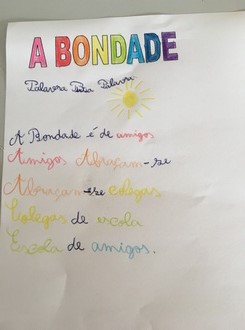 A BONDADE
Palavra Puxa Palavra
A Bondade é de amigos
Amigos Abraçam-se
Abraçam-se colegas
Colegas de escola
Escola de amigos.